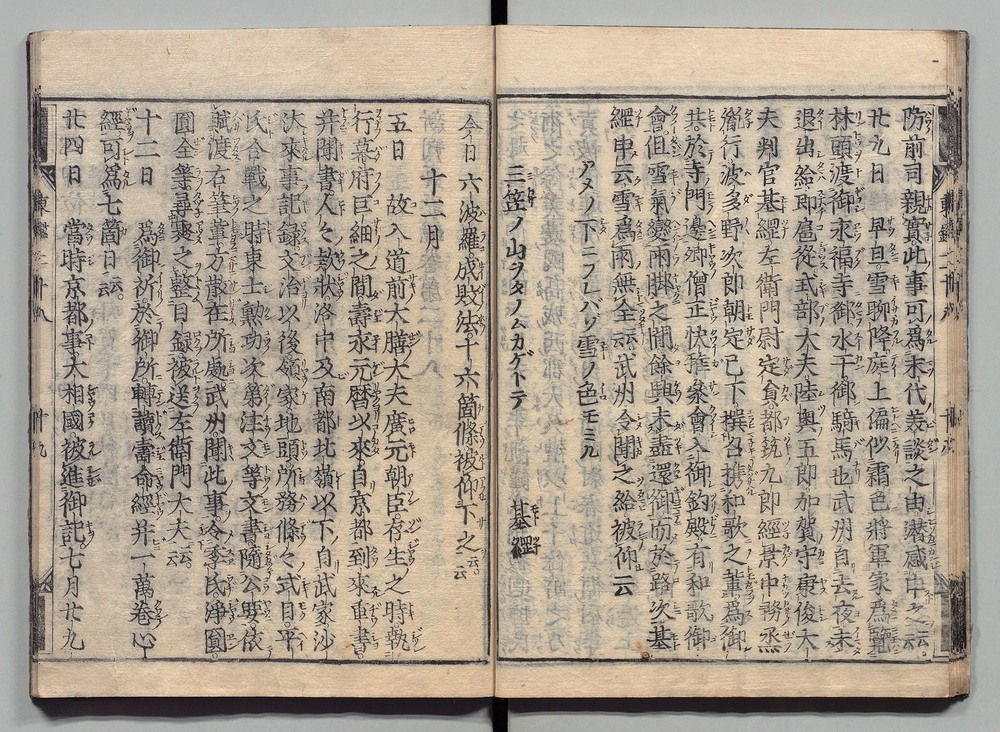 防前司親實此事可爲末代美談之由潜感申之云云。
廿九日　早旦雪聊降庭上偏似霜色將軍家爲覽
林頭渡御永福寺御水干御騎馬也武州自去夜未
退出給即扈從式部大夫陸奥五郎加賀守康俊大
夫判官基綱左衛門尉定員都筑九郎經景中務丞
胤行波多野次郎朝定已下撰召携和歌之輩爲御
共於寺門邊卿僧正快雅參會入御釣殿有和歌御
會但雪氣變雨脚之間餘興未盡還御而於路次基
綱申云雪爲雨無全云云武州令聞之給被仰云
アメノ下ニフレバゾ雪ノ色モミル
三笠ノ山ヲタノムカゲトテ　基綱
今日六波羅成敗法十六箇條被仰下之云云。
十二月
五日　故入道前大膳大夫廣元朝臣存生之時執
行幕府巨細之間壽永元曆以來自京都到來重書
并聞書人々款狀洛中及南都北嶺以下自武家沙
汰來事記録文治以後領家地頭所務條々式目平
氏合戰之時東士勲功次第注文等文書隨公要依
賦渡右筆輩方散在所處武州聞此事令季氏淨圓
圓全等尋聚之整目録被送左衛門大夫云云
十二日　爲御祈於御所轉讀壽命經并一萬卷心
經可爲七箇日云云。
廿四日　當時京都事大相國被進御記七月廿九
東鑑二十八　廿九